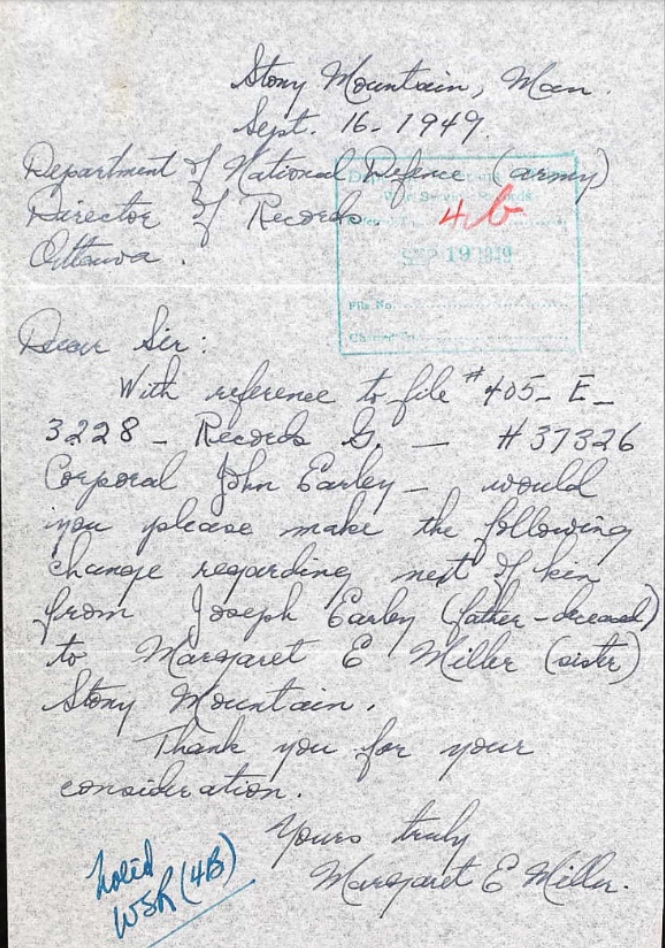 Stony Mountain, Man.
Sept. 16- 1949.
Department of National Defence (army)
Director of Records.
Ottawa.
War Service Records
4b
SEP 19 1949
File No.
Dear Sir:
With reference to file #405- E-
3228 - Records G. - H 37326
Corporal John Earley - would
you please make the following
change regarding next of kin
from Joseph Earley (father - deceased)
to Margaret E Miller (sister)
Stony Mountain.
Thank you for your
consideration.
Yours truly
Margaret E Miller.
noted
WSR (4B)